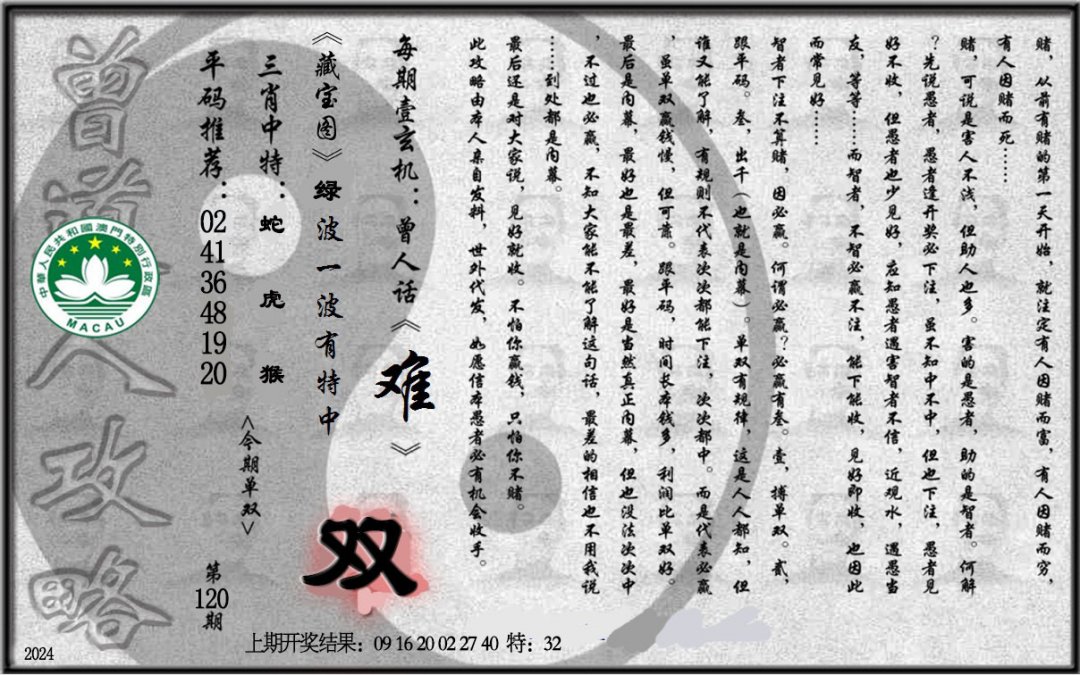 赌，从前有赌的第一天开始，就注定有人因赌而富，有人因赌而穷，
有人因赌而死……
赌，可说是害人不浅，但助人也多。害的是愚者，助的是智者。何解
？先说愚者，愚者逢开奖必下注，虽不知中不中，但也下注，愚者见
好不收，但愚者也少见好，应知愚者遇害智者不信，近观水，遇愚当
友，等等……而智者，不智必赢不注，能下能收，见好即收，也因此
而常见好……
智者下注不算赌，因必赢。何谓必赢？必赢有叁。壹，搏单双。贰，
跟平码。叁，出千（也就是内幕）。单双有规律，这是人人都知，但
谁又能了解，有规则不代表次次都能下注，次次都中。而是代表必赢
，虽单双赢钱慢，但可靠。跟平码，时间长本钱多，利润比单双好。
最后是内幕，最好也是最差，最好是当然真正内幕，但也没法次次中
，不过也必赢，不知大家能不能了解这句话，最差的相信也不用我说
……到处都是内幕。
最后还是对大家说，见好就收。不怕你赢钱，只怕你不赌。
此攻略由本人亲自发料，世外代发，如愿信本愚者必有机会收手。
每期壹玄机：曾人话《难》
《藏宝图》绿波一波有特中
双
三肖中特：蛇 虎 猴
<今期单双>
平码推荐：02 41 36 48 19 20
第120期
曾道人攻略
中華人民共和國澳門特別行政區
MACAU
上期开奖结果：09 16 20 02 27 40 特：32
2024